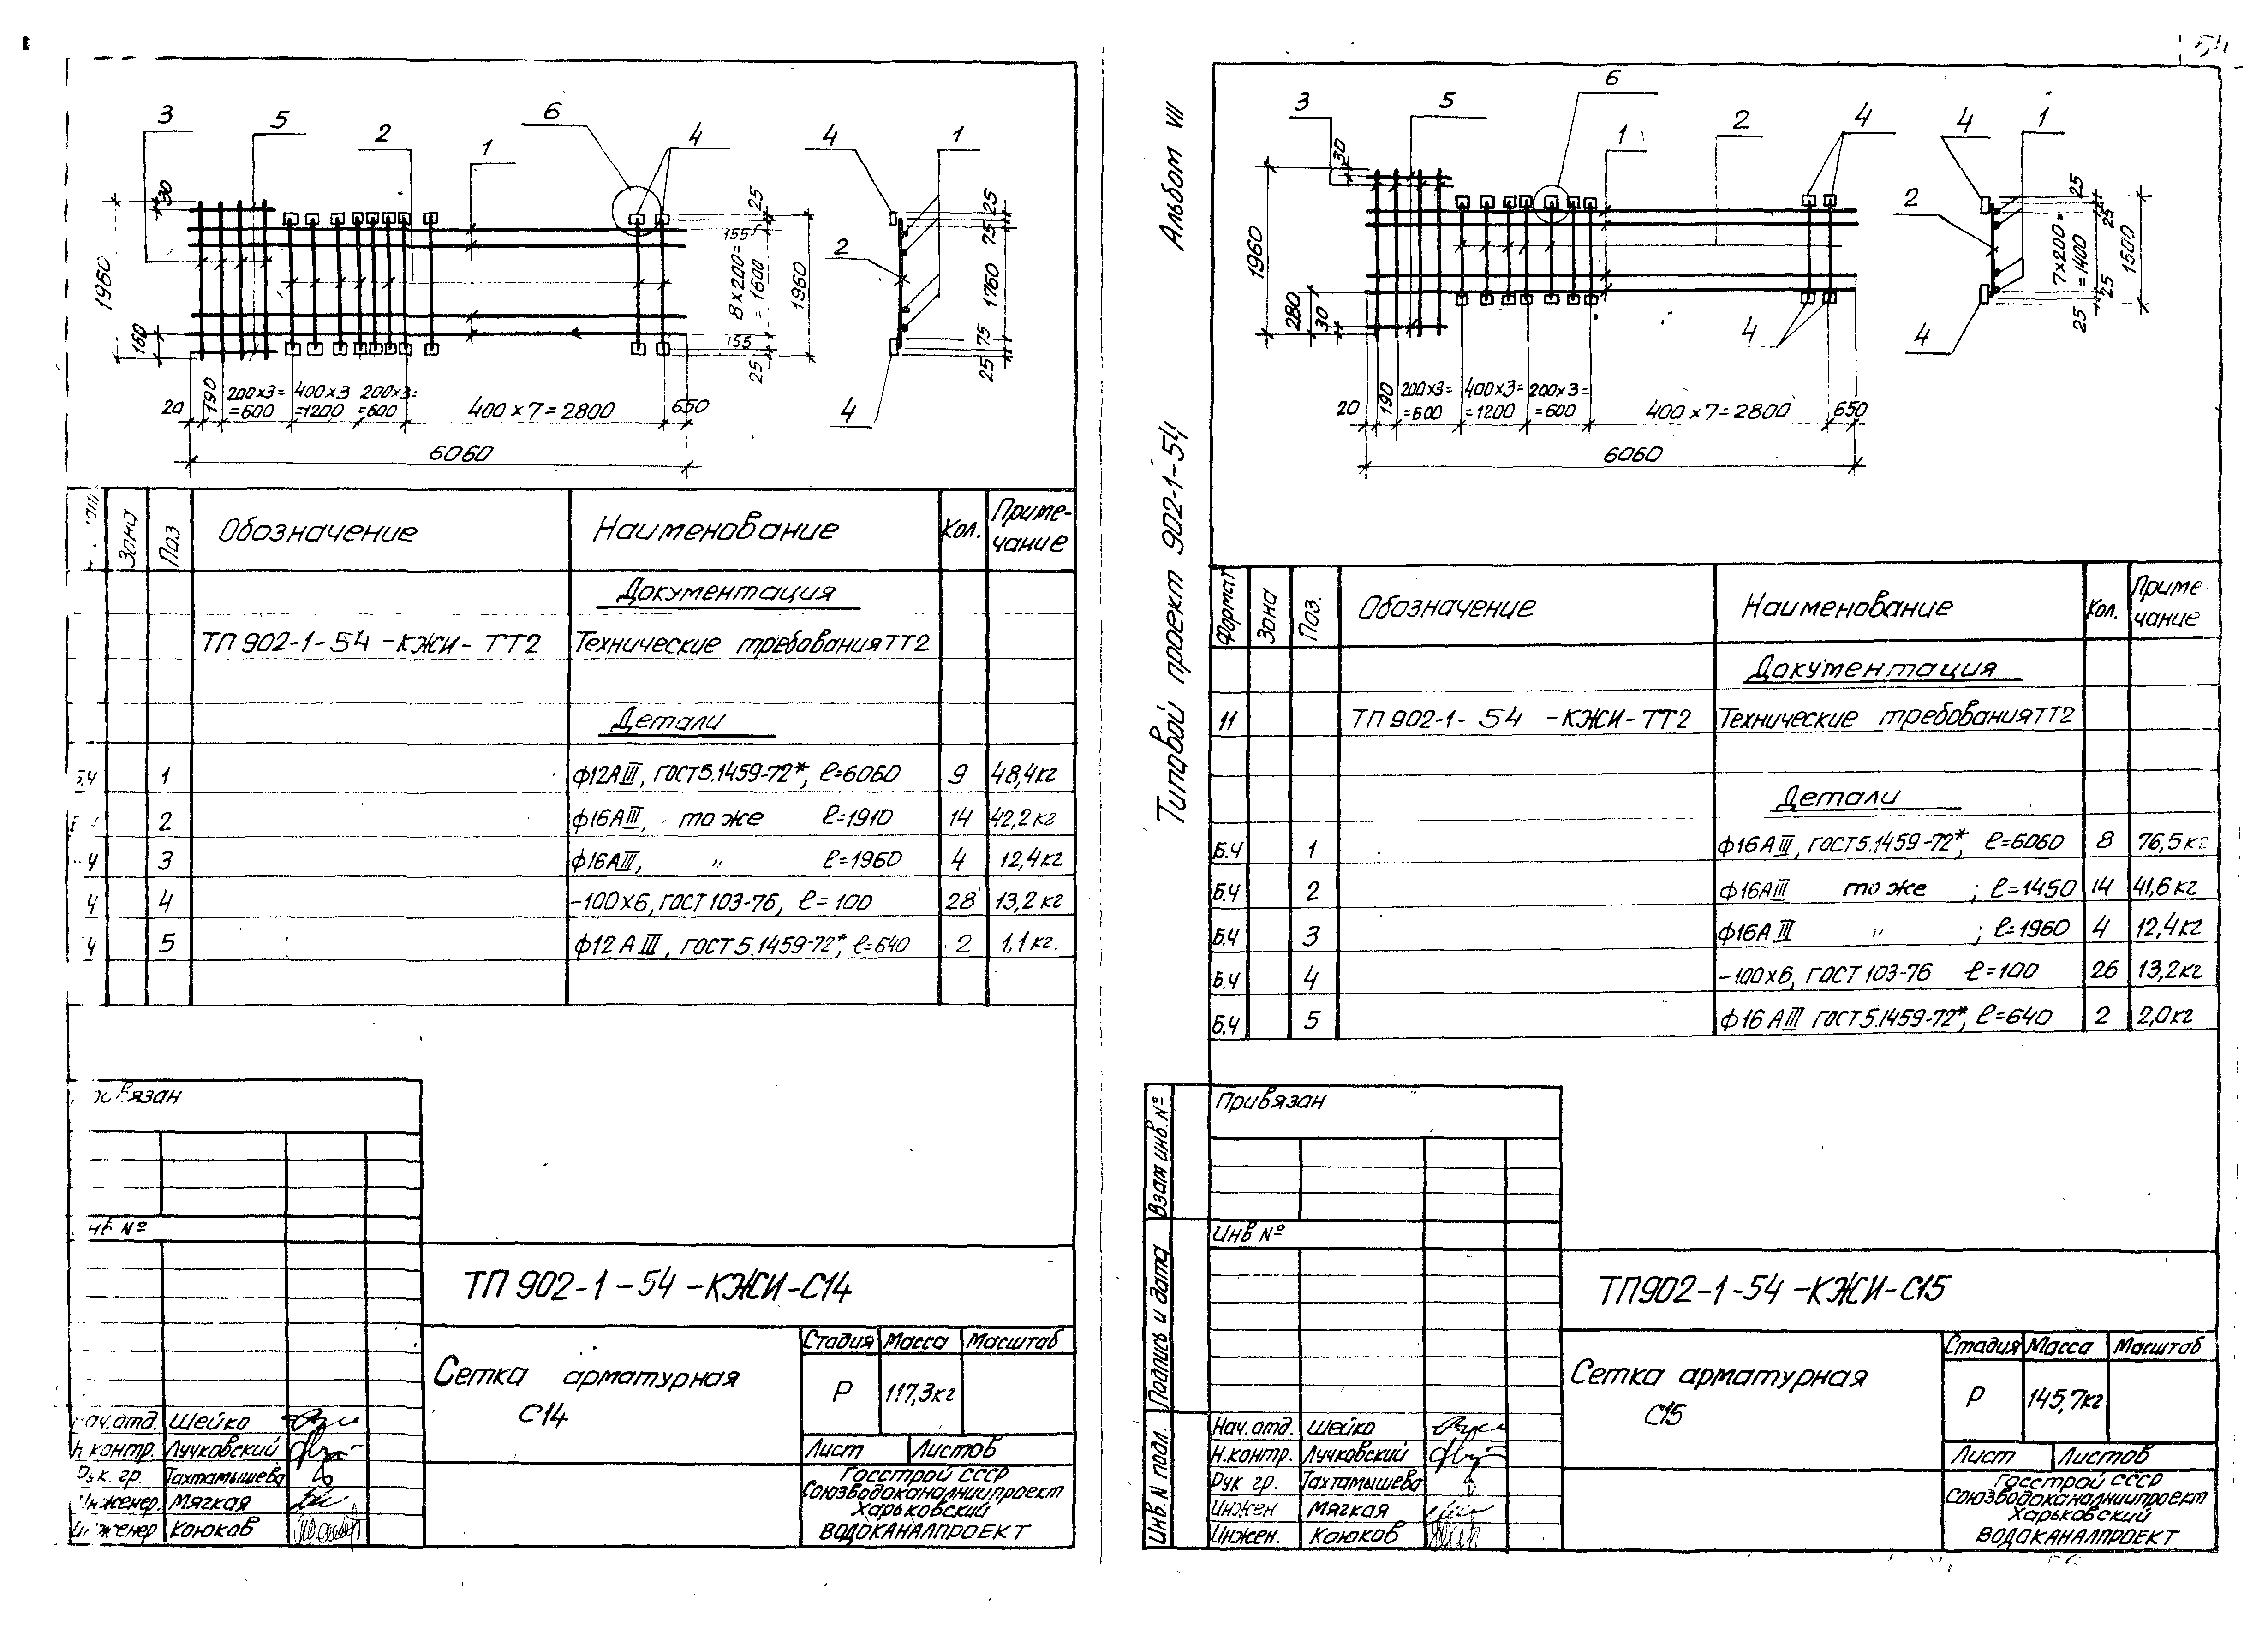 54
3
5
2
1
6
4
4
1
2
4
30
1960
160
25
155
8x200=
=1600
155
25
1960
25
75
1760
75
25
20
190
200x3=
=600
400x3
=1200
200x3=
=600
400x7=2800
650
6060
Зона
Поз
Обозначение
Наименование
Кол.
Приме-
чание
Документация
ТП 902-1-54-КЖИ-ТТ2 Технические требования ТТ2
Детали
1 ф12АIII, ГОСТ5.1459-72*, ℓ=6060 9 48,4кг
2 ф16АIII, то же ℓ=1910 14 42,2кг
3 ф16АIII, " ℓ=1960 4 12,4кг
4 -100х6, ГОСТ 103-76, ℓ=100 28 13,2кг
5 ф12 АIII, ГОСТ 5.1459-72*, ℓ=640 2 1,1кг.
ТП 902-1-54-КЖИ-С14
Сетка арматурная
С14
Стадия Масса Масштаб
Р 117,3кг
Лист Листов
Госстрой СССР
Союзводоканалниипроект
Харьковский
ВОДОКАНАЛПРОЕКТ
Шейко
Н.контр. Лучковский
Рук. гр. Тахтамышева
Инженер. Мягкая
Инженер Коюков
Альбом VII
Типовой проект 902-1-54
3
5
6
1
2
4
4
1
2
4
4
30
1960
280
30
25
25
7х200=
=1400
25
25
1500
20
190
200х3=
=600
400х3=
=1200
200х3=
=600
400х7=2800
650
6060
Формат
Зона
Поз.
Обозначение
Наименование
Кол.
Приме-
чание
Документация
11 ТП 902-1-54-КЖИ-ТТ2 Технические требования ТТ2
Детали
Б.Ч 1 ф16АIII, ГОСТ5.1459-72*, ℓ=6060 8 76,5кг
Б.Ч 2 ф16АIII то же ; ℓ=1450 14 41,6кг
Б.Ч 3 ф16АIII " ; ℓ=1960 4 12,4кг
Б.Ч 4 -100х6, ГОСТ 103-76 ℓ=100 26 13,2кг
Б.Ч 5 ф16 АIII ГОСТ 5.1459-72*, ℓ=640 2 2,0кг
Привязан
Инв №
Взам инв. №
Подпись и дата
Инв. N подл.
ТП902-1-54-КЖИ-С15
Сетка арматурная
С15
Стадия Масса Масштаб
Р 145,7кг
Лист Листов
Госстрой СССР
Союзводоканалниипроект
Харьковский
ВОДОКАНАЛПРОЕКТ
Нач.отд. Шейко
Н.контр. Лучковский
Рук гр. Тахтамышева
Инжен Мягкая
Инжен. Коюков